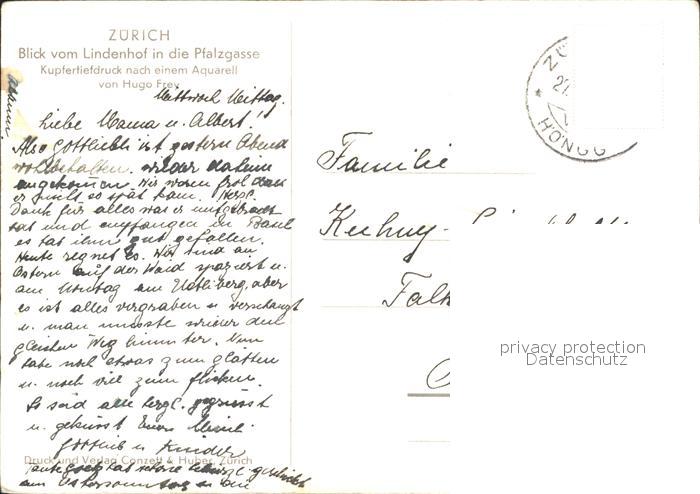 ZÜRICH
Blick vom Lindenhof in die Pfalzgasse
Kupfertiefdruck nach einem Aquarell
von Hugo Frey
Mittwoch Mittag.
Liebe Mama u. Albert!
Also Gottliebli ist gestern Abend
wohlbehalten wieder daheim
angekommen. Wir waren froh dass
er nicht so spät kam. Herzl.
Dank für alles was er mitgebracht
hat und empfangen in Basel
es hat ihm gut gefallen.
Heute regnet es. Wir sind an
Ostern auf der Waid spaziert u.
am Montag am Uetliberg, aber
es ist alles vergraben u. verschanzt
u. man musste wieder den
gleichen Weg hinunter. Nun
habe noch etwas zum glätten
u. noch viel zum flicken.
Es seid alle herzl. gegrüsst
u. geküsst Eure
Gottlieb u. Kinder
Druck und Verlag Conzett & Huber, Zürich
am Ostersonntag
ZÜ
HÖNGG
Familie
privacy protection
Datenschutz